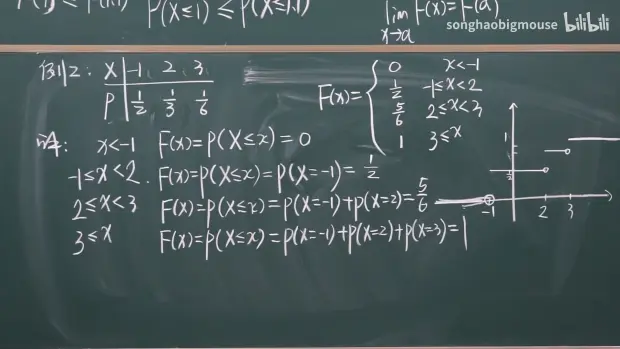 P(X≤1) ≤ P(X≤1.1)
lim F(x)=F(a)
x→a
songhaobigmouse bilibili
例2: X -1, 2, 3
P 1/2 1/3 1/6
F(x)= { 0 x<-1
1/2 -1≤x<2
5/6 2≤x<3
1 3≤x
解: x<-1 F(x)=P(X≤x)=0
-1≤x<2. F(x)=P(X≤x)=P(X=-1)=1/2
2≤x<3 F(x)=P(X≤x)=P(X=-1)+P(X=2)=5/6
3≤x F(x)=P(X≤x)=P(X=-1)+P(X=2)+P(X=3)=1
1
-1 2 3